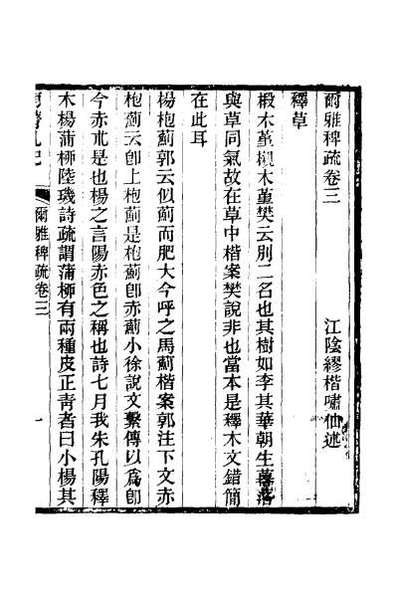 爾雅稗疏卷三
江陰繆楷嘯仙述
釋草
椴木堇櫬木堇樊云別二名也其樹如李其華朝生暮落
與草同氣故在草中楷案樊說非也當本是釋木文錯簡
在此耳
楊枹薊郭云似薊而肥大今呼之馬薊楷案郭注下文赤
枹薊云卽上枹薊是枹薊卽赤薊小徐說文繫傳以爲卽
今赤朮是也楊之言陽赤色之稱也詩七月我朱孔陽釋
木楊蒲柳陸璣詩疏謂蒲柳有兩種皮正青者曰小楊其
爾雅稗疏卷三
一